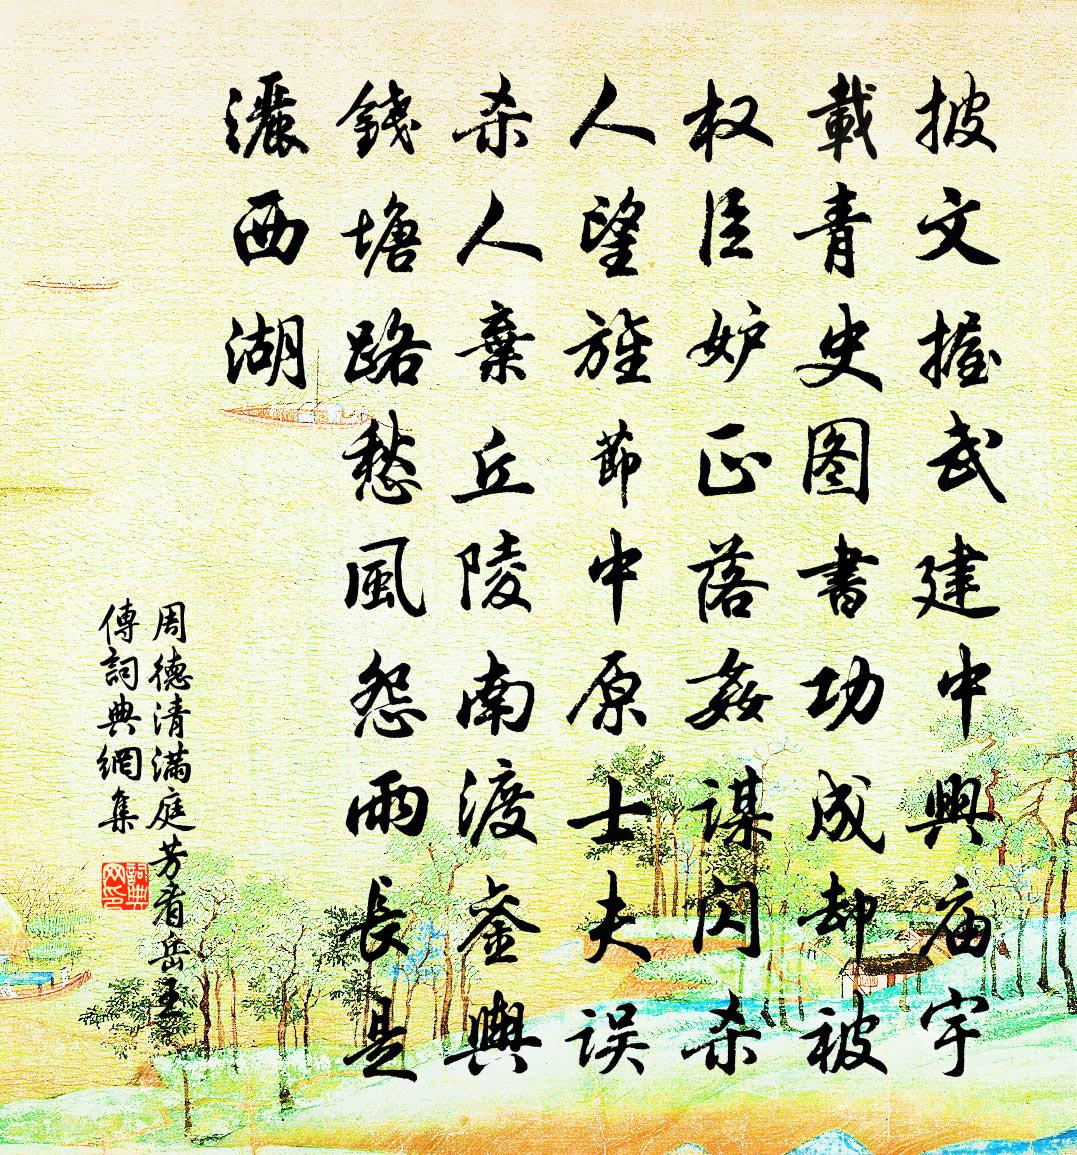 披文握武建中興庙宇
載青史图書功成却被
权臣妒正落姦谋闪杀
人望旌節中原士夫误
杀人棄丘陵南渡銮輿
錢塘路愁風怨雨長是
灑西湖
周德清满庭芳看岳王
傳詞典網集
詞典网印